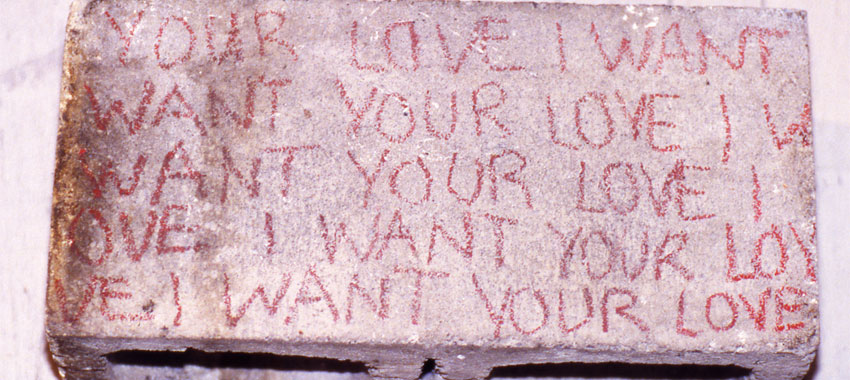 YOUR LOVE I WANT
WANT YOUR LOVE I W
WANT YOUR LOVE I
OVE I WANT YOUR LOV
VE I WANT YOUR LOVE